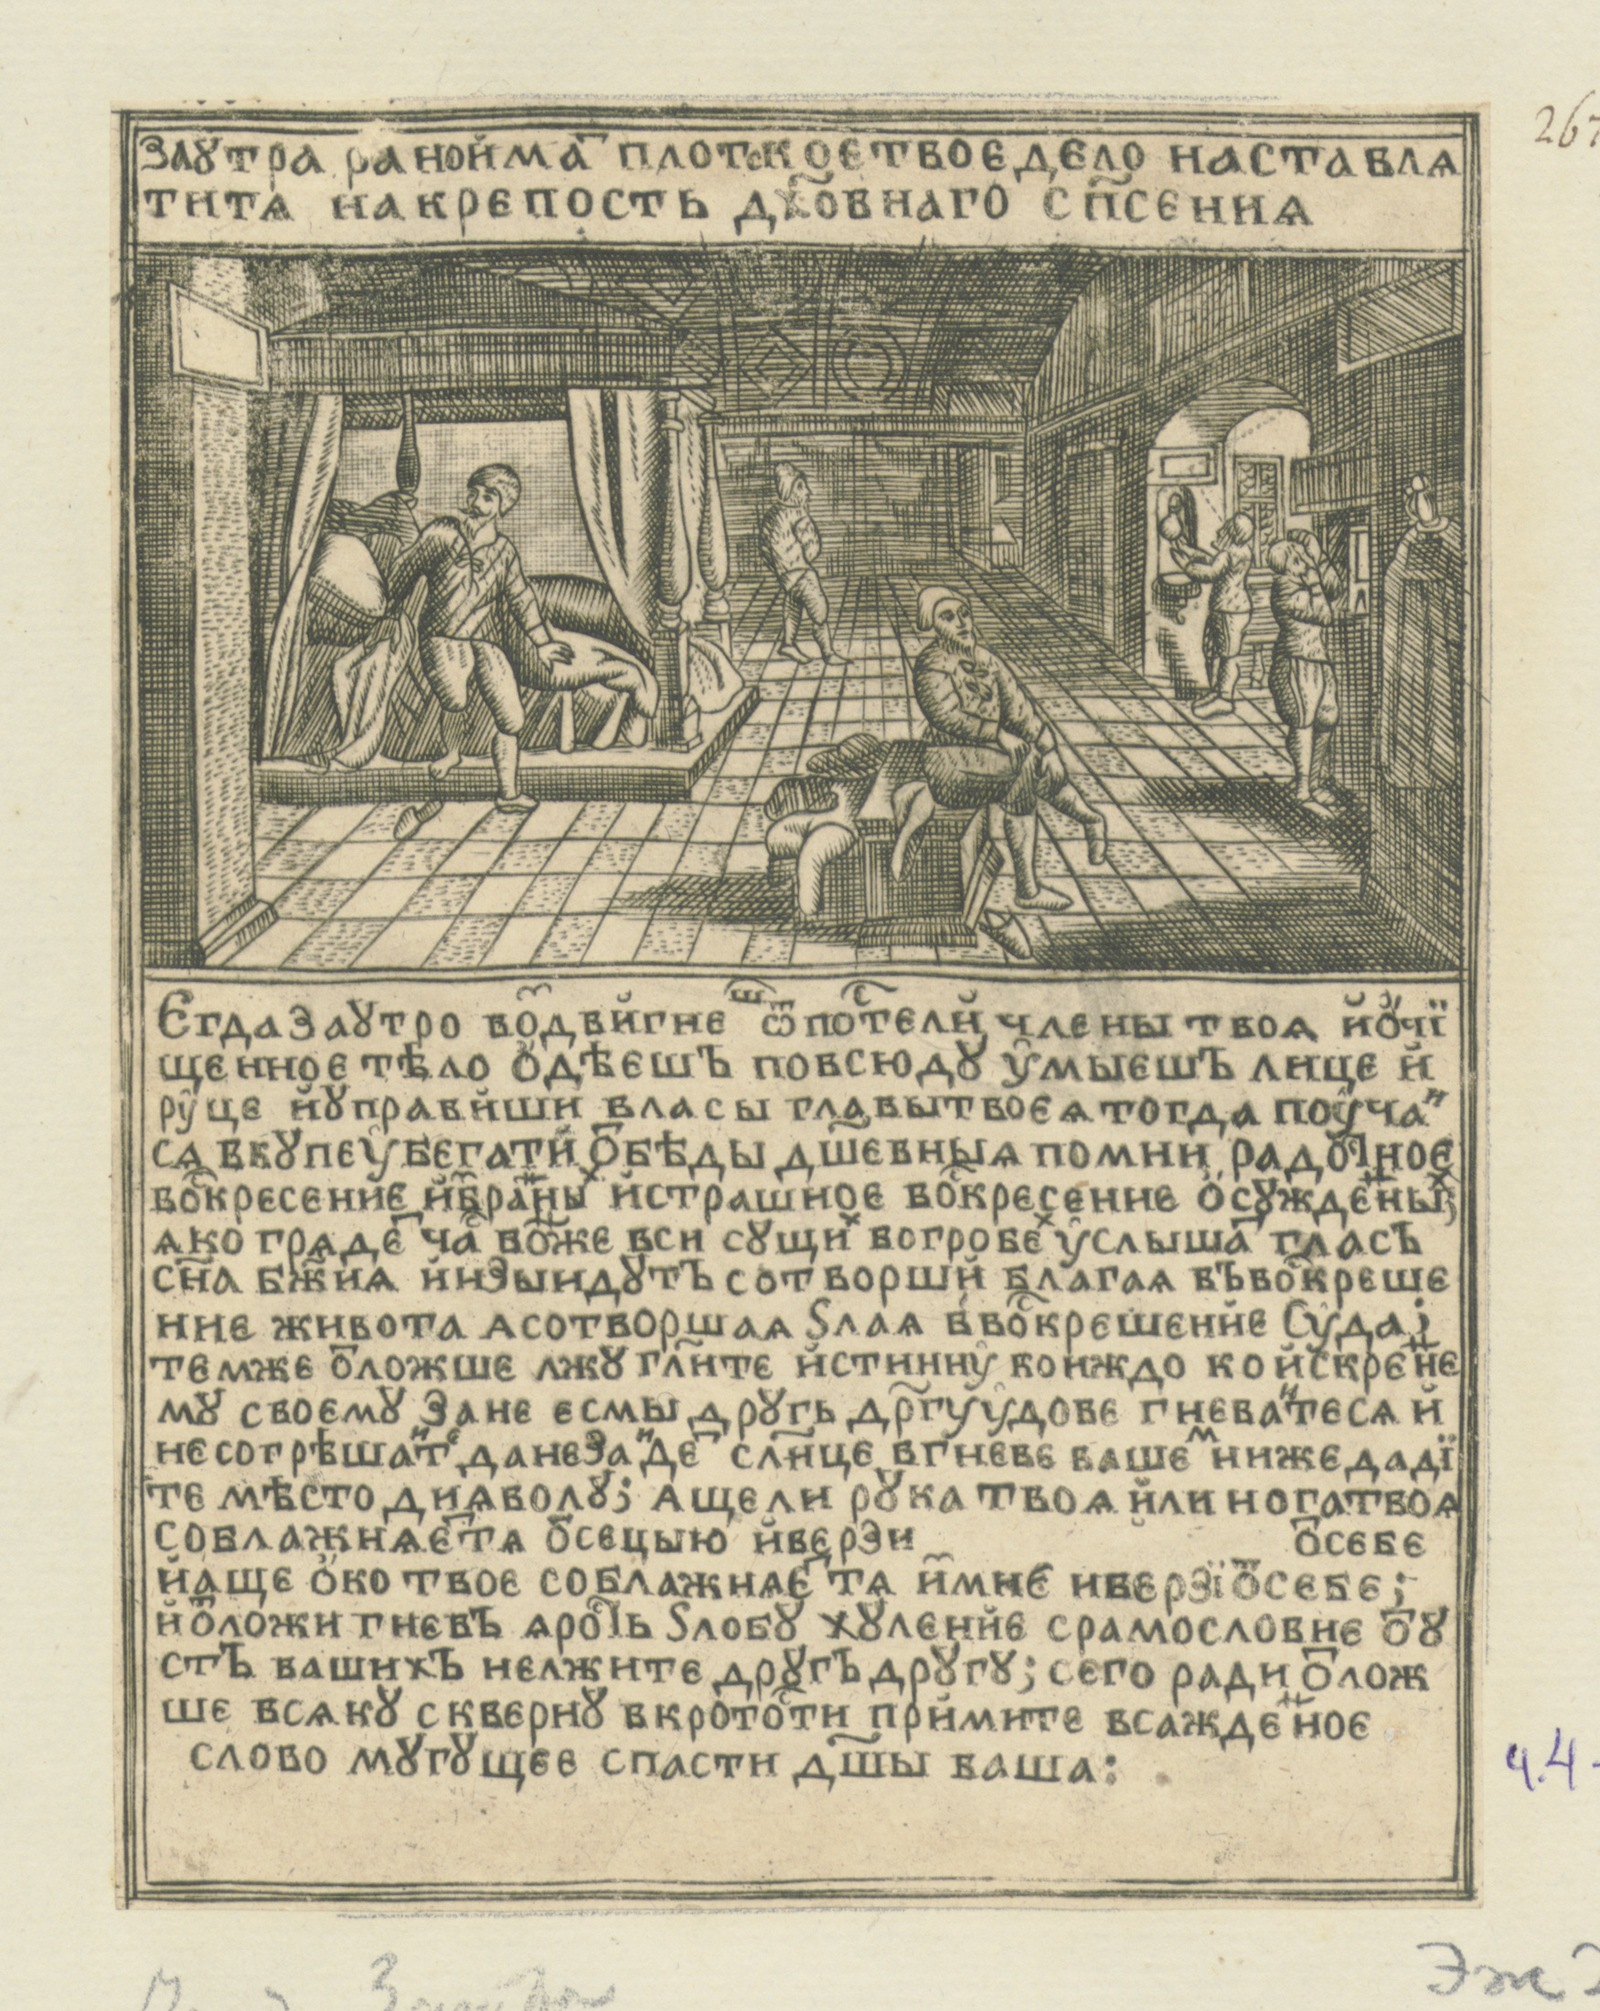 заꙋтра ранойма̑ плотское твое дело наставлѧ
титѧ накрепость дх҃овнаго сп҃сениѧ
Єгда заꙋтро воздвигне ѿ постели члены твоѧ и очї
щенное тѣло одѣешъ повсюдꙋ умыешъ лице й
руце йꙋправиши власы главы твоеѧ тогда поуча и
сѧ вкꙋпе убегати ѿ бѣды дш҃евныѧ помни радостное
воскресение избранны х и страшное воскресение осꙋжденны х;
ѧко грѧде т час воньже вси сꙋщи х вогробе х услыша т гласъ
сн҃а бж҃иѧ и изыидꙋтъ сотворший благаѧ въвоскреше
ние живота а сотворшаѧ ѕлаѧ ввоскрешение Суда;
темже ѿложше лжꙋ гл҃ите истинну коиждо ко искренне
мꙋ своемꙋ Зане есмы дрꙋгь дрꙋгу удове гнева и тесѧ й
несогрѣша ит е да неза и де т слн҃це вгневе ваше м ниже дадї
те мѣсто диѧволꙋ; Аще ли рꙋка твоѧ или нога твоѧ
соблажнѧе т тѧ ѿсецыю йверзи ѿ себе
йаще око твое соблажнѧе т тѧ изми е иверзї ѿ себе;
й ѿложи гневъ ѧрость ѕлобꙋ хꙋление срамословие ѿ ꙋ
стъ вашихъ нелжите дрꙋгъ дрꙋгꙋ; сего ради ѿлож
ше всѧкꙋ сквернꙋ вкротости примите всажденное
слово мꙋгꙋщее спасти дш҃ы ваша:
ч.4